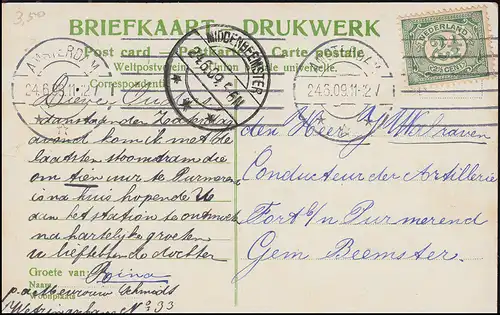 3,50
BRIEFKAART - DRUKWERK
Post card — Postkarte — Carte postale
Weltpostverein — Union postale universelle.
Correspondentie
AMSTERDAM
24.6.09.11-12V
MIDDENBEEMSTER
24.6.09. 5-6N
AMSTERDAM
24.6.09.11-12V
NEDERLAND
2½
CENT
Lieve Ouders
aanstaanden Zaterdag
avond kom ik met de
laatsten stoomtram die
om tien uur te Purmerend
is na huis hopende Ue
aan het station te ontmoeten
na hartelijke groeten
u liefhebbende dochter
Groete van:
Naam
Woonplaats
p.a. Mevrouw Schmidt
Weteringschans No 33
den Heer J Walraven
Conducteur der Artillerie
Fort b/n Purmerend
Gem Beemster